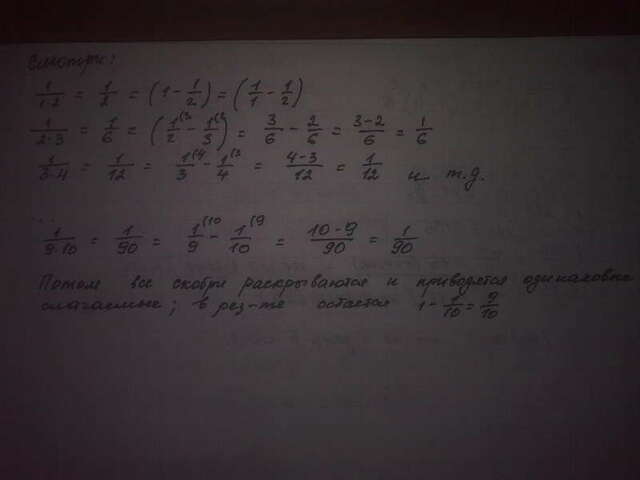 Смотри:
1/1·2 = 1/2 = (1 - 1/2) = (1/1 - 1/2)
1/2·3 = 1/6 = (1(3/2 - 1(2/3) = 3/6 - 2/6 = 3-2/6 = 1/6
1/3·4 = 1/12 = 1(4/3 - 1(3/4 = 4-3/12 = 1/12 и т.д.
...
1/9·10 = 1/90 = 1(10/9 - 1(9/10 = 10-9/90 = 1/90
Потом все скобки раскрываются и приводятся одинаковые
слагаемые; в рез-те остается 1 - 1/10 = 9/10